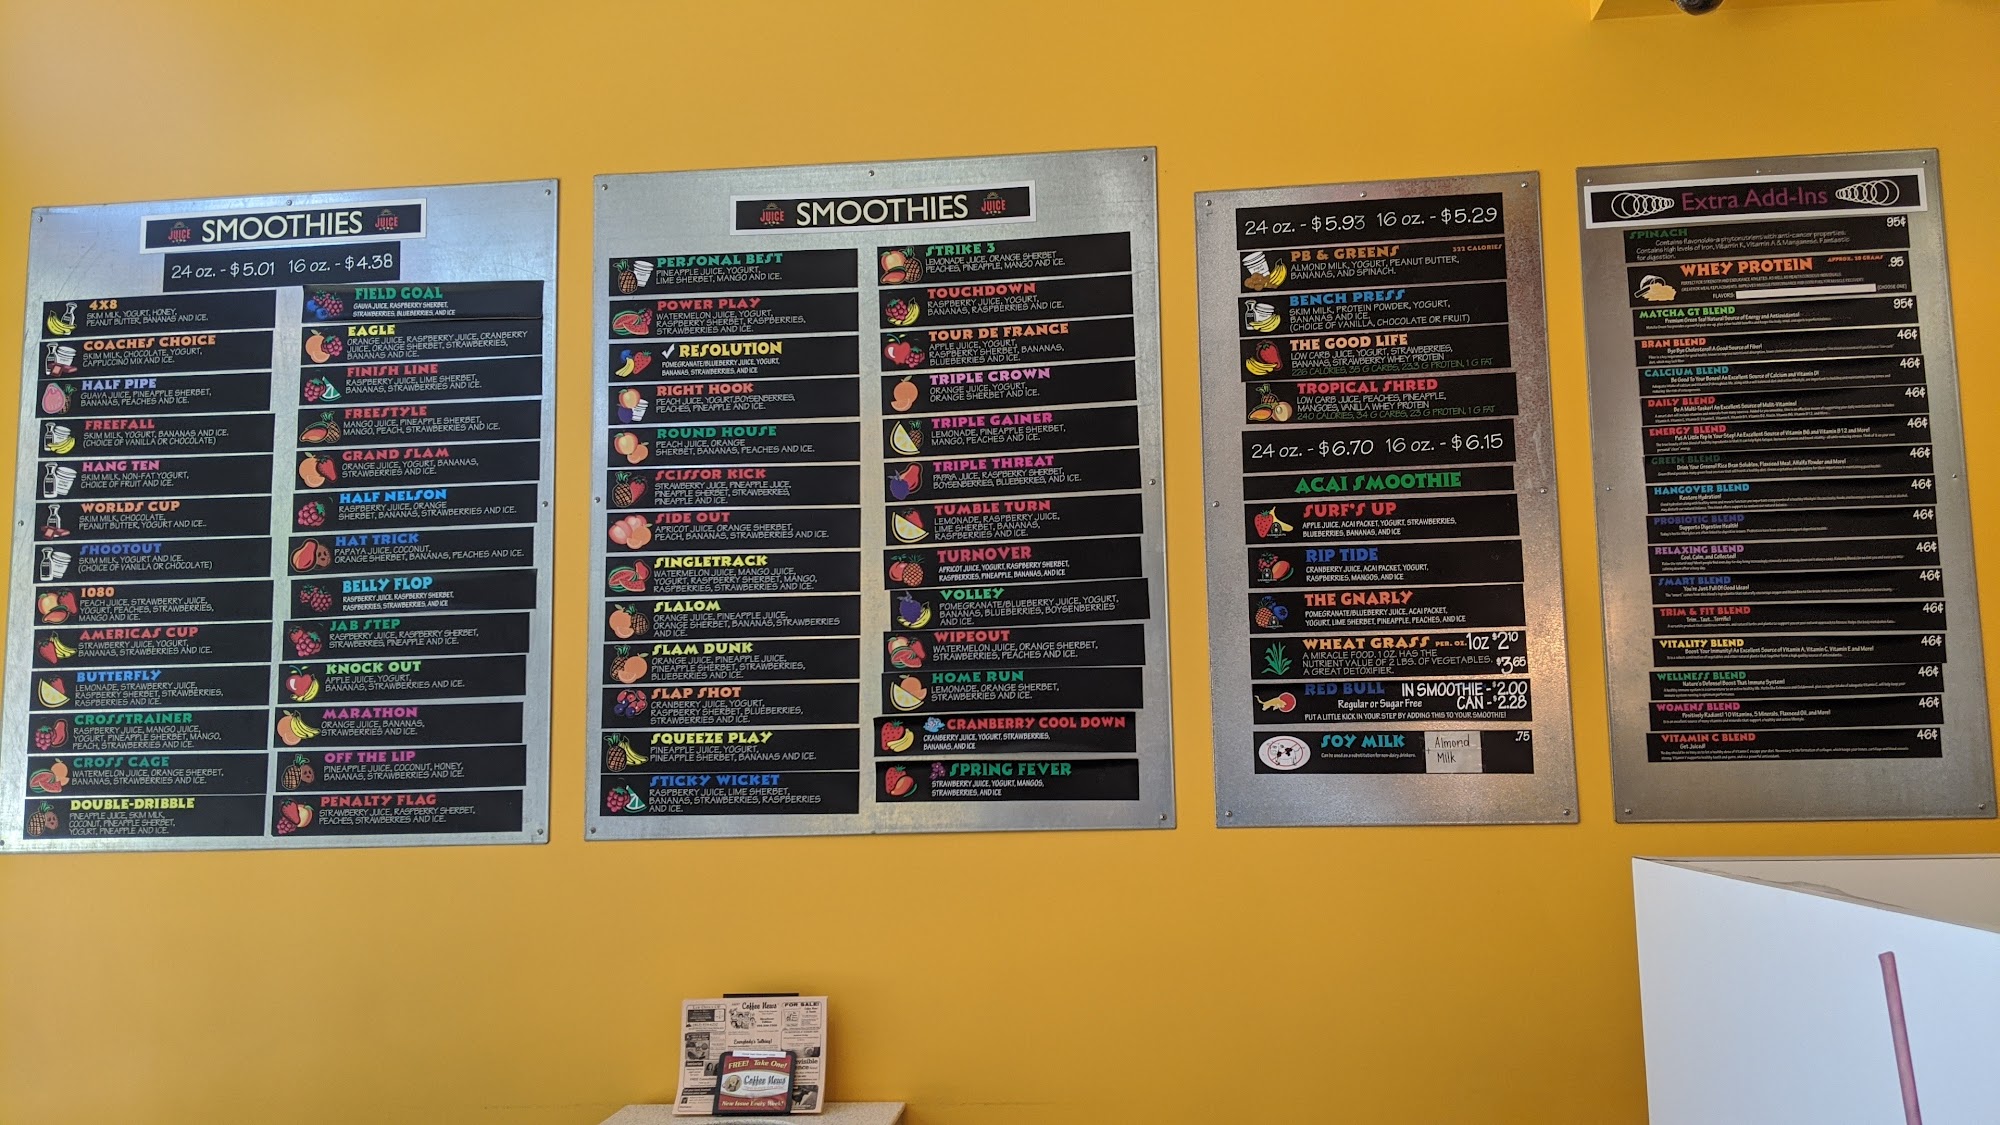 JUICE SMOOTHIES JUICE
24 oz. - $5.01 16 oz. - $4.38
4X8
SKIM MILK, YOGURT, HONEY,
PEANUT BUTTER, BANANAS AND ICE.
COACHES CHOICE
SKIM MILK, CHOCOLATE, YOGURT,
CAPPUCCINO MIX AND ICE.
HALF PIPE
GUAVA JUICE, PINEAPPLE SHERBET,
BANANAS, PEACHES AND ICE.
FREEFALL
SKIM MILK, YOGURT, BANANAS AND ICE.
(CHOICE OF VANILLA OR CHOCOLATE)
HANG TEN
SKIM MILK, NON-FAT YOGURT,
CHOICE OF FRUIT AND ICE.
WORLDS CUP
SKIM MILK, CHOCOLATE,
PEANUT BUTTER, YOGURT AND ICE..
SHOOTOUT
SKIM MILK, YOGURT AND ICE.
(CHOICE OF VANILLA OR CHOCOLATE)
1080
PEACH JUICE, STRAWBERRY JUICE,
YOGURT, PEACHES, STRAWBERRIES,
MANGO AND ICE.
AMERICAS CUP
STRAWBERRY JUICE, YOGURT,
BANANAS, STRAWBERRIES AND ICE.
BUTTERFLY
LEMONADE, STRAWBERRY JUICE,
RASPBERRY SHERBET, STRAWBERRIES,
BANANAS AND ICE.
CROSSTRAINER
RASPBERRY JUICE, MANGO JUICE,
YOGURT, PINEAPPLE SHERBET, MANGO,
PEACH, STRAWBERRIES AND ICE.
CROSS CAGE
WATERMELON JUICE, ORANGE SHERBET,
BANANAS, STRAWBERRIES AND ICE.
DOUBLE-DRIBBLE
PINEAPPLE JUICE, SKIM MILK,
COCONUT, PINEAPPLE SHERBET,
YOGURT, PINEAPPLE AND ICE.
FIELD GOAL
GAUVA JUICE, RASPBERRY SHERBET,
STRAWBERRIES, BLUEBERRIES, AND ICE
EAGLE
ORANGE JUICE, RASPBERRY JUICE, CRANBERRY
JUICE, ORANGE SHERBET, STRAWBERRIES,
BANANAS AND ICE.
FINISH LINE
RASPBERRY JUICE, LIME SHERBET,
BANANAS, STRAWBERRIES AND ICE.
FREESTYLE
MANGO JUICE, PINEAPPLE SHERBET,
MANGO, PEACH, STRAWBERRIES AND ICE.
GRAND SLAM
ORANGE JUICE, YOGURT, BANANAS,
STRAWBERRIES AND ICE.
HALF NELSON
RASPBERRY JUICE, ORANGE
SHERBET, BANANAS, STRAWBERRIES AND ICE.
HAT TRICK
PAPAYA JUICE, COCONUT,
ORANGE SHERBET, BANANAS, PEACHES AND ICE.
BELLY FLOP
RASPBERRY JUICE, RASPBERRY SHERBET,
RASPBERRIES, STRAWBERRIES, AND ICE
JAB STEP
RASPBERRY JUICE, RASPBERRY SHERBET,
STRAWBERRIES, PINEAPPLE AND ICE.
KNOCK OUT
APPLE JUICE, YOGURT,
BANANAS, STRAWBERRIES AND ICE.
MARATHON
ORANGE JUICE, BANANAS,
STRAWBERRIES AND ICE.
OFF THE LIP
PINEAPPLE JUICE, COCONUT, HONEY,
BANANAS, PINEAPPLE AND ICE.
PENALTY FLAG
STRAWBERRY JUICE, RASPBERRY SHERBET,
PEACHES, STRAWBERRIES AND ICE.
JUICE SMOOTHIES JUICE
PERSONAL BEST
PINEAPPLE JUICE, YOGURT,
LIME SHERBET, MANGO AND ICE.
POWER PLAY
WATERMELON JUICE, YOGURT,
RASPBERRY SHERBET, RASPBERRIES,
STRAWBERRIES AND ICE.
RESOLUTION
POMEGRANATE/BLUEBERRY JUICE, YOGURT,
BANANAS, STRAWBERRIES, AND ICE
RIGHT HOOK
PEACH JUICE, YOGURT, BOYSENBERRIES,
PEACHES, PINEAPPLE AND ICE.
ROUND HOUSE
PEACH JUICE, ORANGE
SHERBET, BANANAS, PEACHES AND ICE.
SCISSOR KICK
STRAWBERRY JUICE, PINEAPPLE JUICE,
PINEAPPLE SHERBET, STRAWBERRIES,
PINEAPPLE AND ICE.
SIDE OUT
APRICOT JUICE, ORANGE SHERBET,
PEACH, BANANAS, STRAWBERRIES AND ICE.
SINGLETRACK
WATERMELON JUICE, MANGO JUICE,
YOGURT, RASPBERRY SHERBET, MANGO,
RASPBERRIES, STRAWBERRIES AND ICE.
SLALOM
ORANGE JUICE, PINEAPPLE JUICE,
ORANGE SHERBET, BANANAS, STRAWBERRIES
AND ICE.
SLAM DUNK
ORANGE JUICE, PINEAPPLE JUICE,
ORANGE SHERBET, PINEAPPLE,
BLUEBERRIES AND ICE.
SLAP SHOT
CRANBERRY JUICE, YOGURT,
RASPBERRY SHERBET, BLUEBERRIES,
STRAWBERRIES AND ICE.
SQUEEZE PLAY
PINEAPPLE JUICE, YOGURT,
PINEAPPLE SHERBET, BANANAS AND ICE.
STICKY WICKET
RASPBERRY JUICE, LIME SHERBET,
BANANAS, STRAWBERRIES, RASPBERRIES
AND ICE.
STRIKE 3
LEMONADE JUICE, ORANGE SHERBET
PEACHES, PINEAPPLE, MANGO AND ICE.
TOUCHDOWN
RASPBERRY JUICE, YOGURT,
BANANAS, RASPBERRIES AND ICE.
TOUR DE FRANCE
APPLE JUICE, YOGURT,
RASPBERRY SHERBET, BANANAS,
BLUEBERRIES AND ICE.
TRIPLE CROWN
ORANGE JUICE, YOGURT,
ORANGE SHERBET AND ICE.
TRIPLE GAINER
LEMONADE, PINEAPPLE SHERBET,
MANGO, PEACHES AND ICE.
TRIPLE THREAT
PAPAYA JUICE, RASPBERRY SHERBET,
BOYSENBERRIES, BLUEBERRIES, AND ICE.
TUMBLE TURN
LEMONADE, RASPBERRY JUICE,
LIME SHERBET, BANANAS,
RASPBERRIES AND ICE.
TURNOVER
APRICOT JUICE, YOGURT, RASPBERRY SHERBET,
RASPBERRIES, PINEAPPLE, BANANAS, AND ICE
VOLLEY
POMEGRANATE/BLUEBERRY JUICE, YOGURT,
BANANAS, BLUEBERRIES, BOYSENBERRIES
AND ICE.
WIPEOUT
WATERMELON JUICE, ORANGE SHERBET,
STRAWBERRIES, PEACHES AND ICE.
HOME RUN
LEMONADE, ORANGE SHERBET,
STRAWBERRIES AND ICE.
CRANBERRY COOL DOWN
CRANBERRY JUICE, YOGURT, STRAWBERRIES,
BANANAS, AND ICE
SPRING FEVER
STRAWBERRY JUICE, YOGURT, MANGOS,
STRAWBERRIES, AND ICE
24 oz. - $5.93 16 oz. - $5.29
PB & GREENS 322 CALORIES
ALMOND MILK, YOGURT, PEANUT BUTTER,
BANANAS, AND SPINACH.
BENCH PRESS
SKIM MILK, PROTEIN POWDER, YOGURT,
BANANAS AND ICE.
(CHOICE OF VANILLA, CHOCOLATE OR FRUIT)
THE GOOD LIFE
LOW CARB JUICE, YOGURT, STRAWBERRIES,
BANANAS, STRAWBERRY WHEY PROTEIN
TROPICAL SHRED
LOW CARB JUICE, PEACHES, PINEAPPLE,
MANGOES, VANILLA WHEY PROTEIN
240 CALORIES, 34 G CARBS, 23 G PROTEIN, 1 G FAT
24 oz. - $6.70 16 oz. - $6.15
ACAI SMOOTHIE
SURF'S UP
APPLE JUICE, ACAI PACKET, YOGURT, STRAWBERRIES,
BLUEBERRIES, BANANAS, AND ICE
RIP TIDE
CRANBERRY JUICE, ACAI PACKET, YOGURT,
RASPBERRIES, MANGOS, AND ICE
THE GNARLY
POMEGRANATE/BLUEBERRY JUICE, ACAI PACKET,
YOGURT, LIME SHERBET, PINEAPPLE, PEACHES, AND ICE
WHEAT GRASS PER. OZ. 1OZ $2.10
A MIRACLE FOOD, 1 OZ. HAS THE
NUTRIENT VALUE OF 2 LBS. OF VEGETABLES.
A GREAT DETOXIFIER. $3.65
RED BULL IN SMOOTHIE - $2.00
Regular or Sugar Free CAN - $2.28
PUT A LITTLE KICK IN YOUR STEP BY ADDING THIS TO YOUR SMOOTHIE!
SOY MILK Almond Milk .75
Can be used as a substitution for non-dairy drinkers.
Extra Add-Ins
SPINACH 95¢
Contains flavonoids-a phytonutrients with anti-cancer properties.
Contains high levels of Iron, Vitamin K, Vitamin A & Manganese. Fantastic
for digestion.
WHEY PROTEIN APPROX. 20 GRAMS .95
FLAVORS: (CHOOSE ONE)
MATCHA GT BLEND 95¢
Premium Green Tea! Natural Source of Energy and Antioxidants!
BRAN BLEND 46¢
Bye-Bye Cholesterol! A Good Source of Fiber!
CALCIUM BLEND 46¢
Be Good To Your Bones! An Excellent Source of Calcium and Vitamin D!
DAILY BLEND 46¢
Be A Multi-Tasker! An Excellent Source of Multi-Vitamins!
ENERGY BLEND 46¢
Put A Little Pep In Your Step! An Excellent Source of Vitamin B6 and Vitamin B12 and More!
GREEN BLEND 46¢
Drink Your Greens! Rice Bran Solubles, Flaxseed Meal, Alfalfa Powder and More!
HANGOVER BLEND 46¢
Restore Hydration!
PROBIOTIC BLEND 46¢
Supports Digestive Health!
RELAXING BLEND 46¢
Cool, Calm, and Collected!
SMART BLEND 46¢
You're Just Full Of Good Ideas!
TRIM & FIT BLEND 46¢
Trim... Taut... Terrific!
VITALITY BLEND 46¢
Boost Your Immunity! An Excellent Source of Vitamin A, Vitamin C, Vitamin E and More!
WELLNESS BLEND 46¢
Nature's Defense! Boost That Immune System!
WOMENS BLEND 46¢
Positively Radiant! 10 Vitamins, 5 Minerals, Flaxseed Oil, and More!
VITAMIN C BLEND 46¢
Get Juiced!
Coffee News
FOR SALE!
Everybody's Talking!
FREE! Take One!
Coffee News
New Issue Every Week!